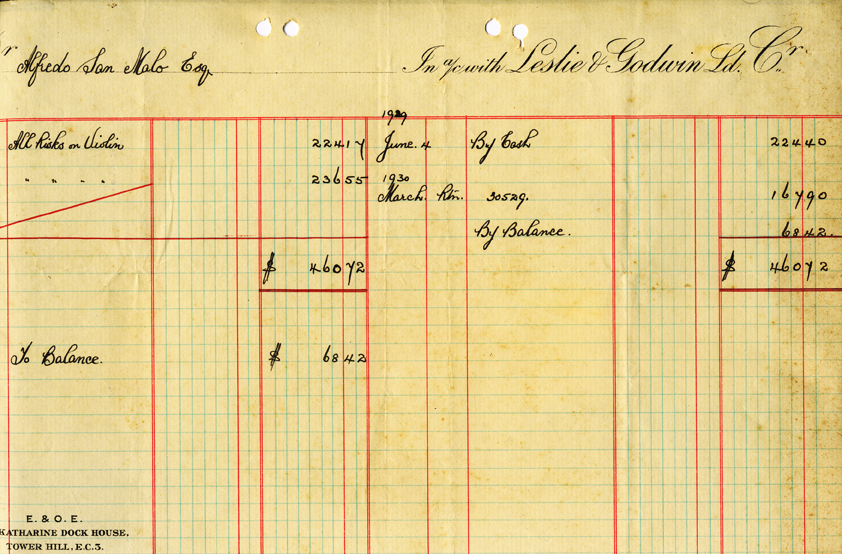 Alfredo San Malo Esq. In a/c with Leslie & Godwin Ld. Cr.
1929
All Risks on Violin 224 17 June. 4 By Cash 224 40
" " " " 236 55 1930
March. Rtn. 30529. 167 90
By Balance. 68 42.
$ 460 72 $ 460 72
To Balance. $ 68 42
E. & O. E.
KATHARINE DOCK HOUSE,
TOWER HILL, E.C.3.